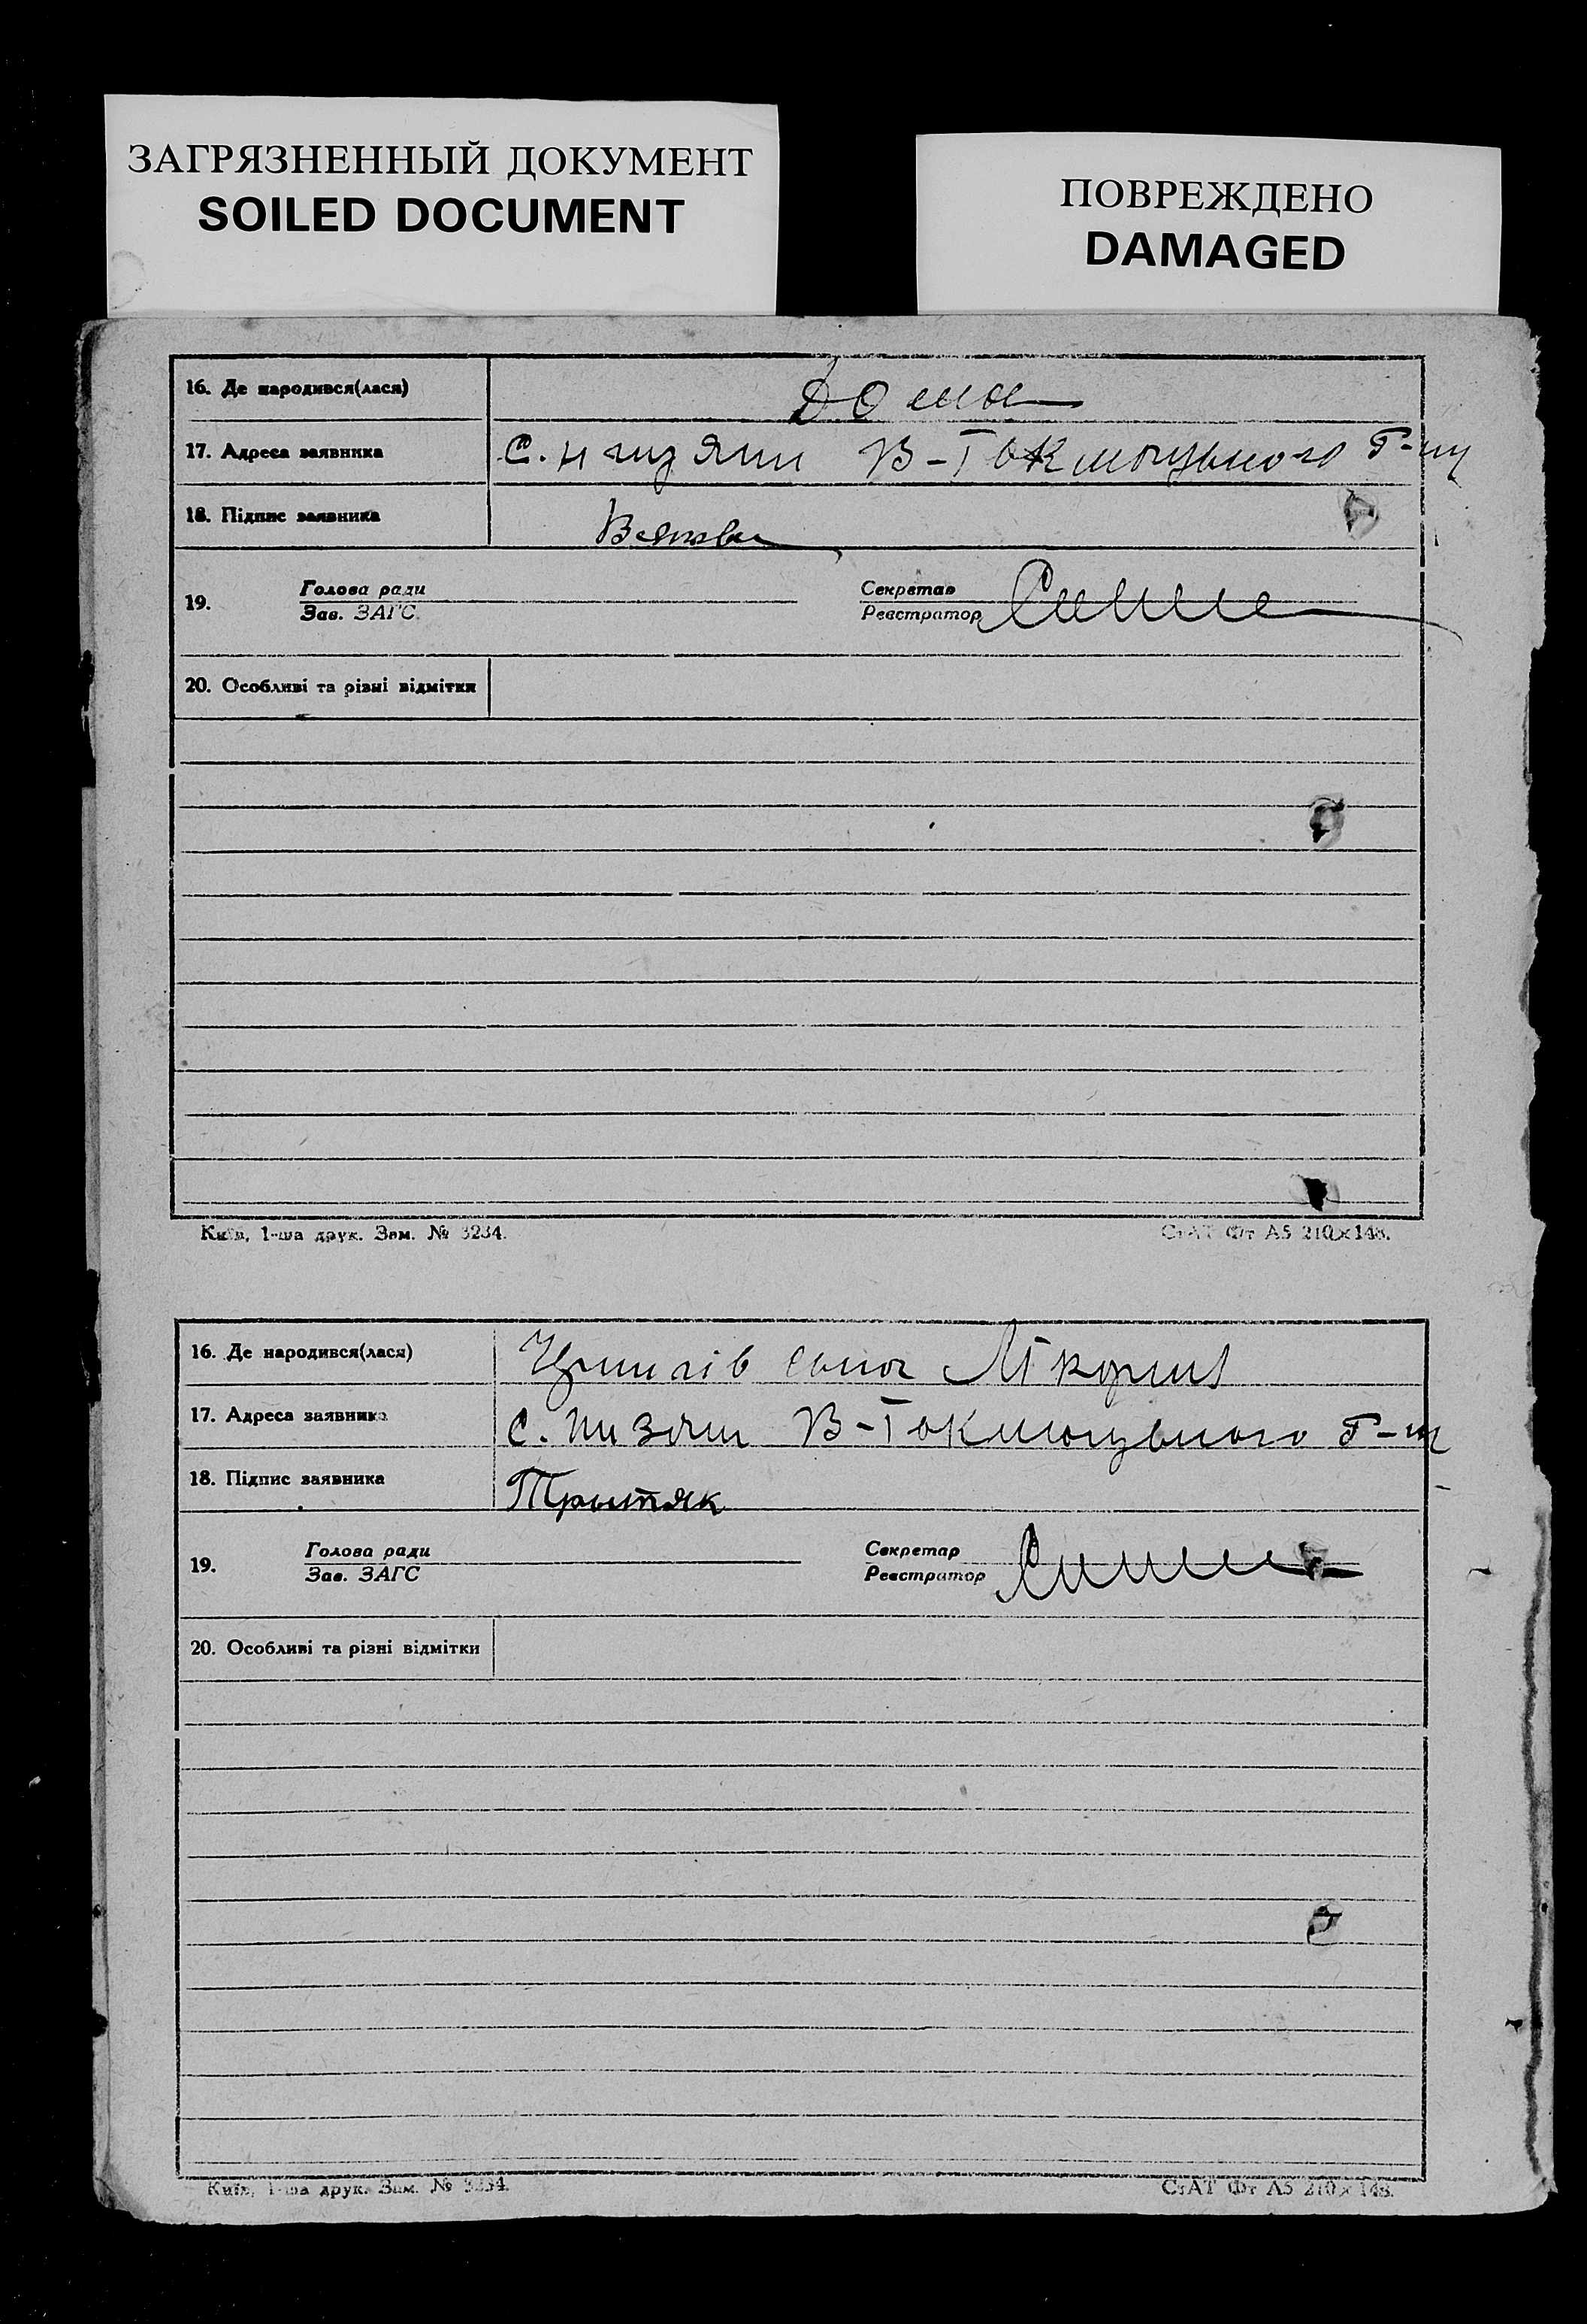 ЗАГРЯЗНЕННЫЙ ДОКУМЕНТ
SOILED DOCUMENT
ПОВРЕЖДЕНО
DAMAGED
16. Де народився(лася) дома
17. Адреса заявника с. В-Токмацького Р-ну
18. Підпис заявника
19. Голова ради Секретар
Зав. ЗАГС Реєстратор
20. Особливі та різні відмітки
Київ, 1-ша друк. Зам. № 3234. СтАТ Фт А5 210×148.
16. Де народився(лася)
17. Адреса заявника с. В-Токмацького Р-н
18. Підпис заявника Трытяк
19. Голова ради Секретар
Зав. ЗАГС Реєстратор
20. Особливі та різні відмітки
Київ, 1-ша друк. Зам. № 3234. СтАТ Фт А5 210×148.